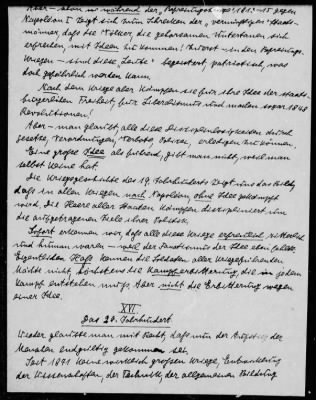 Aber – schon in während der „Befreiungskriege" 1813-15 gegen
Napoleon I zeigt sich zum Schrecken der „vernünftigen" Staats-
männer, daß die Völker, die gehorsamen Untertanen sich
erfrechen, mit Ideen zu kommen! In den Befreiungs-
Kriegen – sind diese Leute begeistert, patriotisch, was
doch gefährlich werden kann.
Nach dem Kriege aber kämpfen sie für ihre Idee der staats-
bürgerlichen Freiheit, für Liberalismus und machen sogar 1848
Revolutionen!
Aber – man glaubt, alle diese Disziplinlosigkeiten durch
Gesetze, Verordnungen, Verbote, Polizei, erledigen zu können.
Eine große Idee als führend, gibt man nicht, weil man
selbst keine hat.
Die Kriegsgeschichte des 19. Jahrhunderts zeigt uns das Bild,
daß in allen Kriegen nach Napoleon, ohne Idee gekämpft
wird, die Heere aller Staaten kämpfen diszipliniert um
die aufgetragenen Ziele ihrer Politik.
Sofort erkennen wir, daß alle diese Kriege erfreulich ritterlich
und human waren – weil der Fanatismus der Idee eben fehlte.
Eigentlichen Haß kennen die Soldaten aller kriegführenden
Mächte nicht, höchstens die Kampferbitterung, die in jedem
Kampf entstehen muß. Aber nicht die Erbitterung wegen
einer Idee.
XVI.
Das 20. Jahrhundert.
Wieder glaubte man mit Recht, daß nun der Aufstieg der
Moralen endgültig gekommen sei.
Seit 1871 keine wirklich großen Kriege, Entwicklung
der Wissenschaften, der Technik, der allgemeinen Bildung